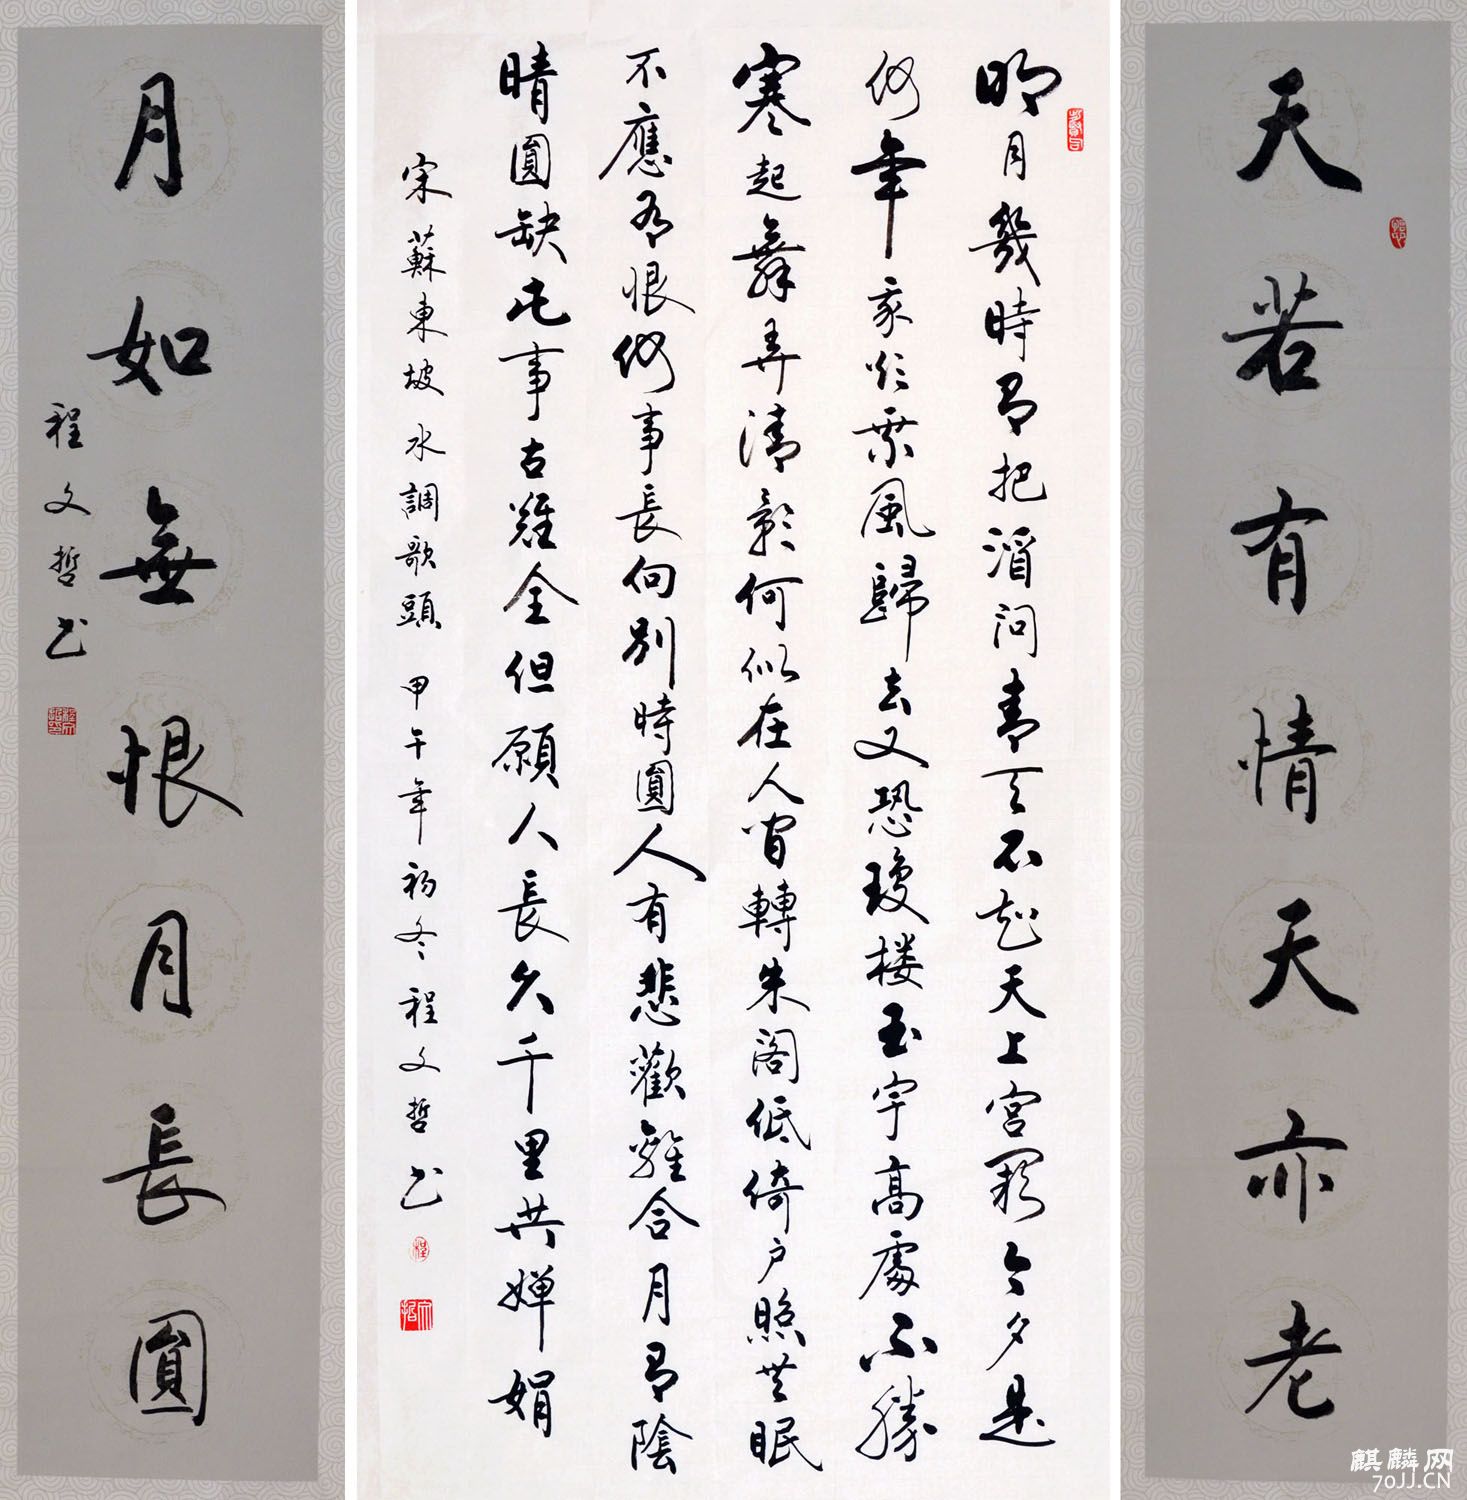 天若有情天亦老
明月幾時有把酒問青天不知天上宮闕今夕是
何年我欲乘風歸去又恐瓊楼玉宇高處不勝
寒起舞弄清影何似在人間轉朱閣低倚户照無眠
不應有恨何事長向別時圓人有悲歡離合月有陰
晴圓缺此事古難全但願人長久千里共嬋娟
宋蘇東坡水調歌頭 甲午年初冬程文哲书
月如無恨月長圓
程文哲书
麒麟网
70JJ.CN